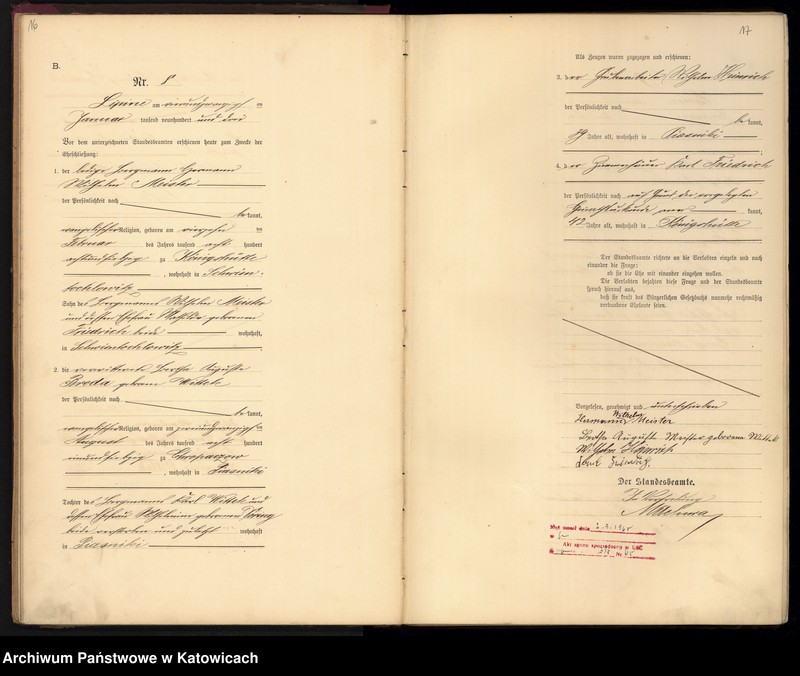 16
B.
Nr. 8
Lipine am vierundzwanzigsten
Januar tausend neunhundert und drei
Vor dem unterzeichneten Standesbeamten erschienen heute zum Zwecke der
Eheschließung:
1. der ledige Bergmann Hermann
Wilhelm Meister
der Persönlichkeit nach
be kannt,
evangelischer Religion, geboren am
Februar des Jahres tausend acht hundert
zu Königshütte
, wohnhaft in Schwien-
tochlowitz
Sohn des Bergmanns Wilhelm Meister
und dessen Ehefrau Mathilde geborenen
Friedrich beide wohnhaft,
in Schwientochlowitz
2. die verwitwete Bertha Auguste
Broda geborene Wittek
der Persönlichkeit nach
be kannt,
evangelischer Religion, geboren am
August des Jahres tausend acht hundert
zu
, wohnhaft in Piasniki
Tochter des Bergmanns Karl Wittek und
dessen Ehefrau Wilhelmine geborenen
beide verstorben und zuletzt wohnhaft
in Piasniki
17
Als Zeugen waren zugezogen und erschienen:
3. der Wilhelm Heinrich
der Persönlichkeit nach
be kannt,
Jahre alt, wohnhaft in Piasniki
4. der Zimmerhäuer Karl Friedrich
der Persönlichkeit nach auf Grund der vorgelegten
kannt,
42 Jahre alt, wohnhaft in Königshütte
Der Standesbeamte richtete an die Verlobten einzeln und nach
einander die Frage:
ob sie die Ehe mit einander eingehen wollen.
Die Verlobten bejahten diese Frage und der Standesbeamte
sprach hierauf aus,
daß sie kraft des Bürgerlichen Gesetzbuchs nunmehr rechtmäßig
verbundene Eheleute seien.
Vorgelesen, genehmigt und unterschrieben
Wilhelm
Hermann Meister
Bertha Auguste Meister geborene Wittek
Wilhelm Heinrich
Karl Friedrich
Der Standesbeamte.
In Vertretung
Akt zgonu sporządzony w USC
Nr
Archiwum Państwowe w Katowicach